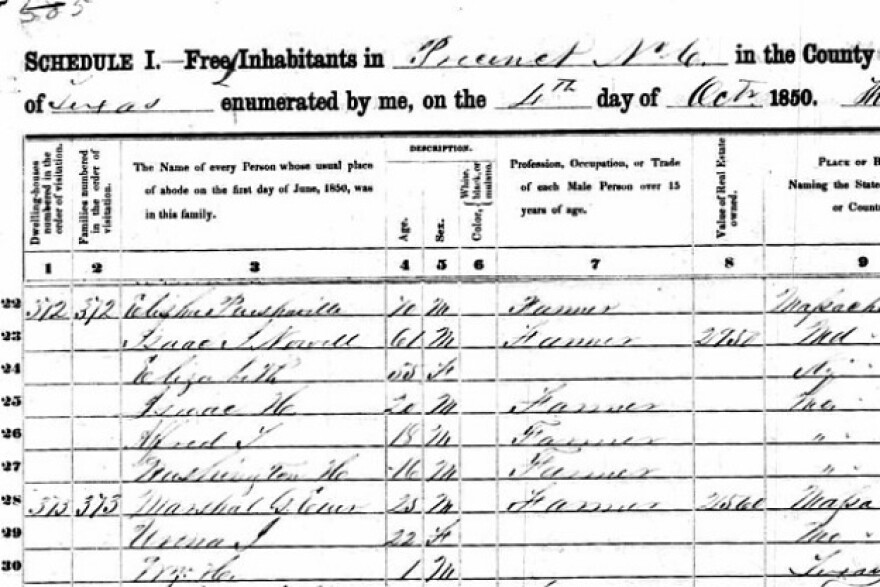 505
SCHEDULE I.—Free Inhabitants in Precinct No 6. in the County
of Texas enumerated by me, on the 4th day of Octr 1850.
Dwelling-houses numbered in the order of visitation.
Families numbered in the order of visitation.
The Name of every Person whose usual place
of abode on the first day of June, 1850, was
in this family.
DESCRIPTION.
Age.
Sex.
Color, { White, black, or mulatto.
Profession, Occupation, or Trade
of each Male Person over 15
years of age.
Value of Real Estate owned.
PLACE OF B
Naming the State
or Count
1 2 3 4 5 6 7 8 9
22 372 372 Elisha M Farmer
23 Isaac S Nowell 61 M Farmer Md
24 Elizabeth F
25 Isaac H 20 M Farmer
26 Alfred J 18 M Farmer "
27 Washington H 16 M Farmer "
28 373 373 Marshal G 25 M Farmer 2560 Massa
29 22 F
30 Wm H. 1 M Texas